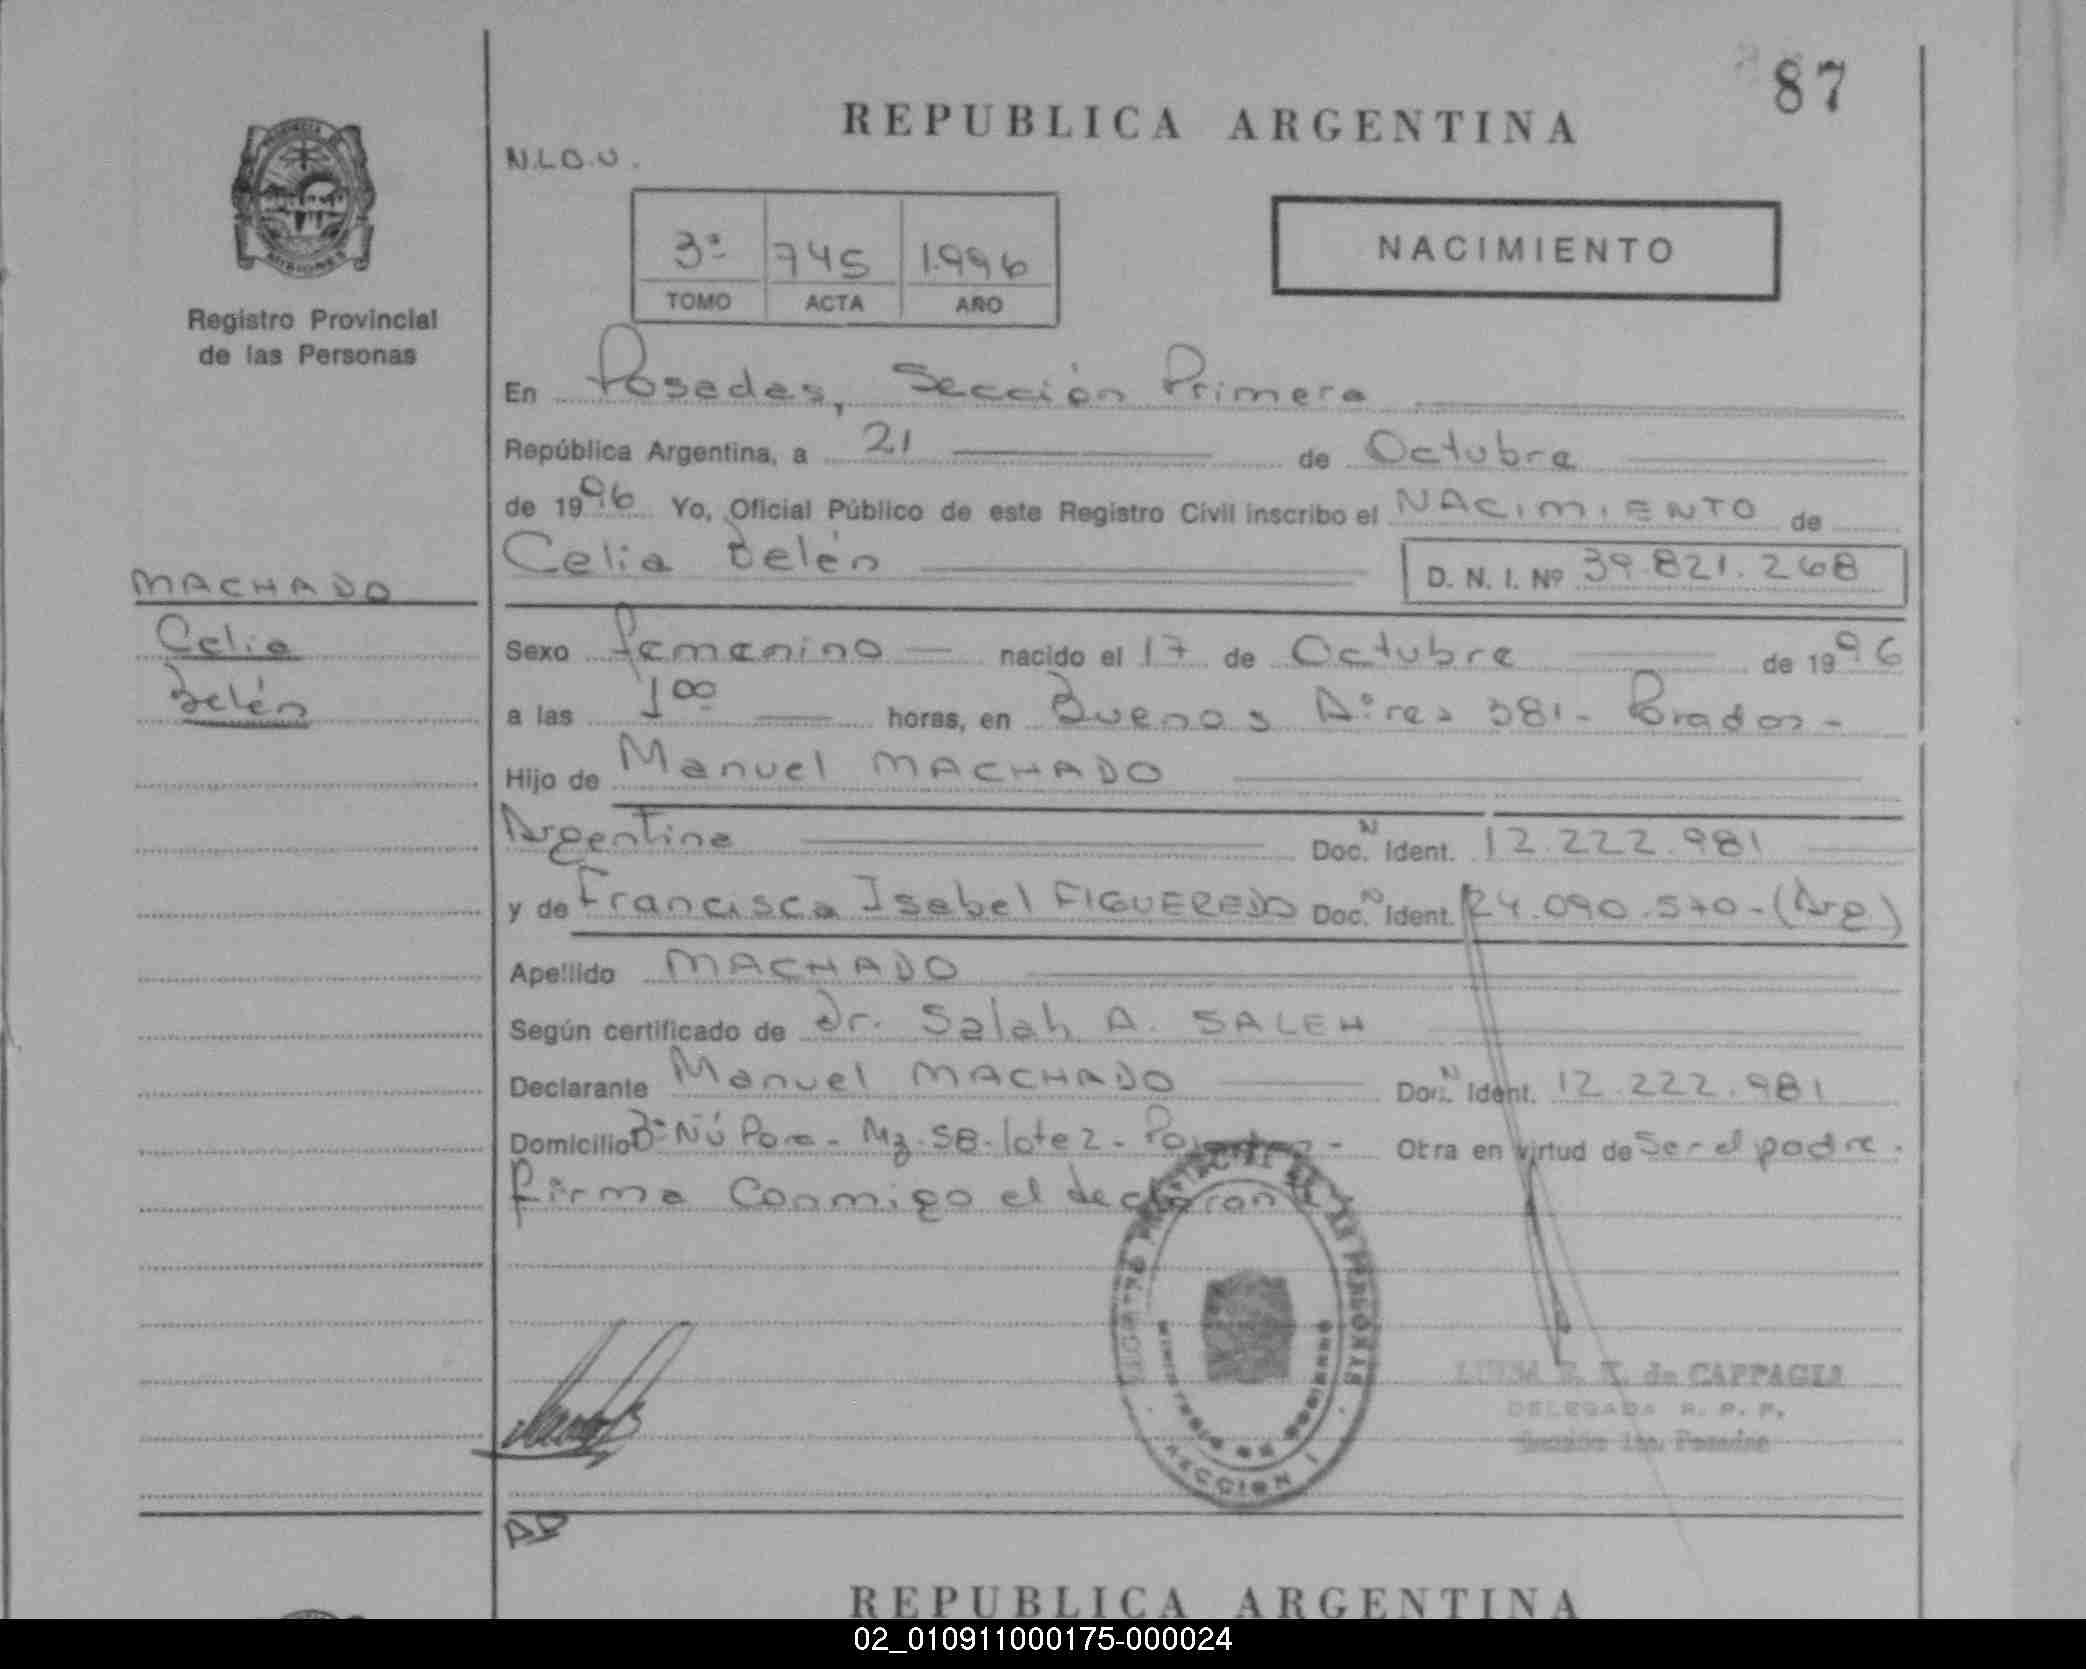 87
REPUBLICA ARGENTINA
N.L.O.U.
3ª 745 1.996
TOMO ACTA AÑO
NACIMIENTO
MISIONES
Registro Provincial
de las Personas
En Posadas, Sección Primera
República Argentina, a 21 de Octubre
de 1996 Yo, Oficial Público de este Registro Civil inscribo el NACIMIENTO de
Celia Belén D. N. I. Nº 39.821.268
MACHADO
Celia
Belén
Sexo femenino nacido el 17 de Octubre de 1996
a las 1 00 horas, en Buenos Aires 381 -
Hijo de Manuel MACHADO
Argentina Doc. N Ident. 12.222.981
y de Francisca Isabel FIGUEREDO Doc. N Ident. 24.090.570 - (Arg)
Apellido MACHADO
Según certificado de Dr. Salah A. SALEH
Declarante Manuel MACHADO Doc. N Ident. 12.222.981
Domicilio Bº Ñú Pora - Mz. 58 - lote 2 - Otra en virtud de Ser el padre.
firma Conmigo el
MINISTERIO DE GOBIERNO
SECCION I
de CAPPAGLI
DELEGADA R. P. P.
Sección 1ra. Posadas
REPUBLICA ARGENTINA
02_010911000175-000024